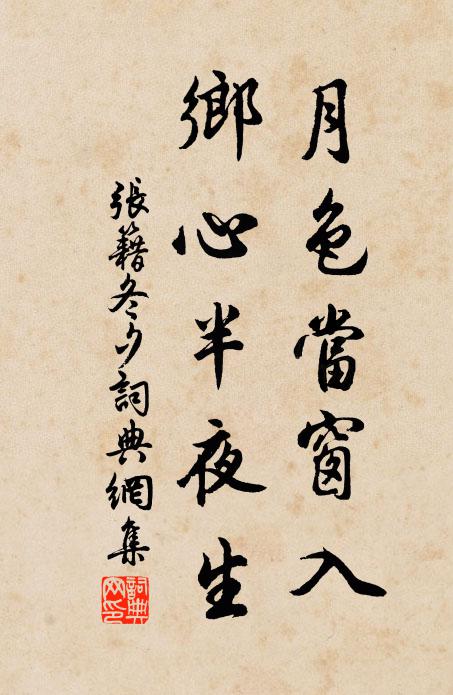 月色當窗入
鄉心半夜生
張籍冬夕詞典網集
詞典網印